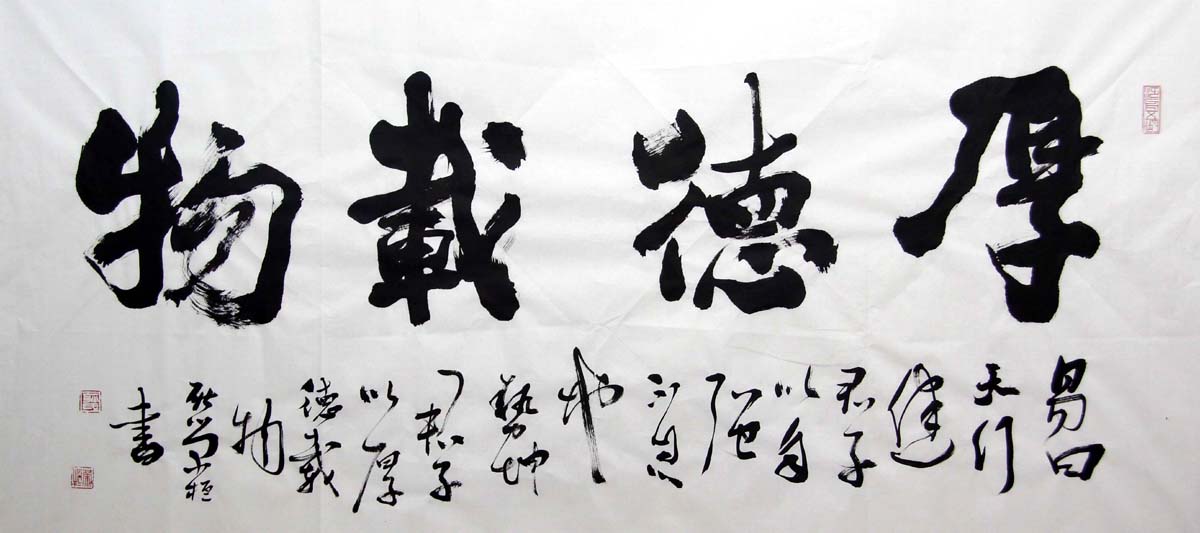 厚德載物
易曰
天行
健
君子
以自
强
不息
地
勢坤
君子
以厚
德載
物
書